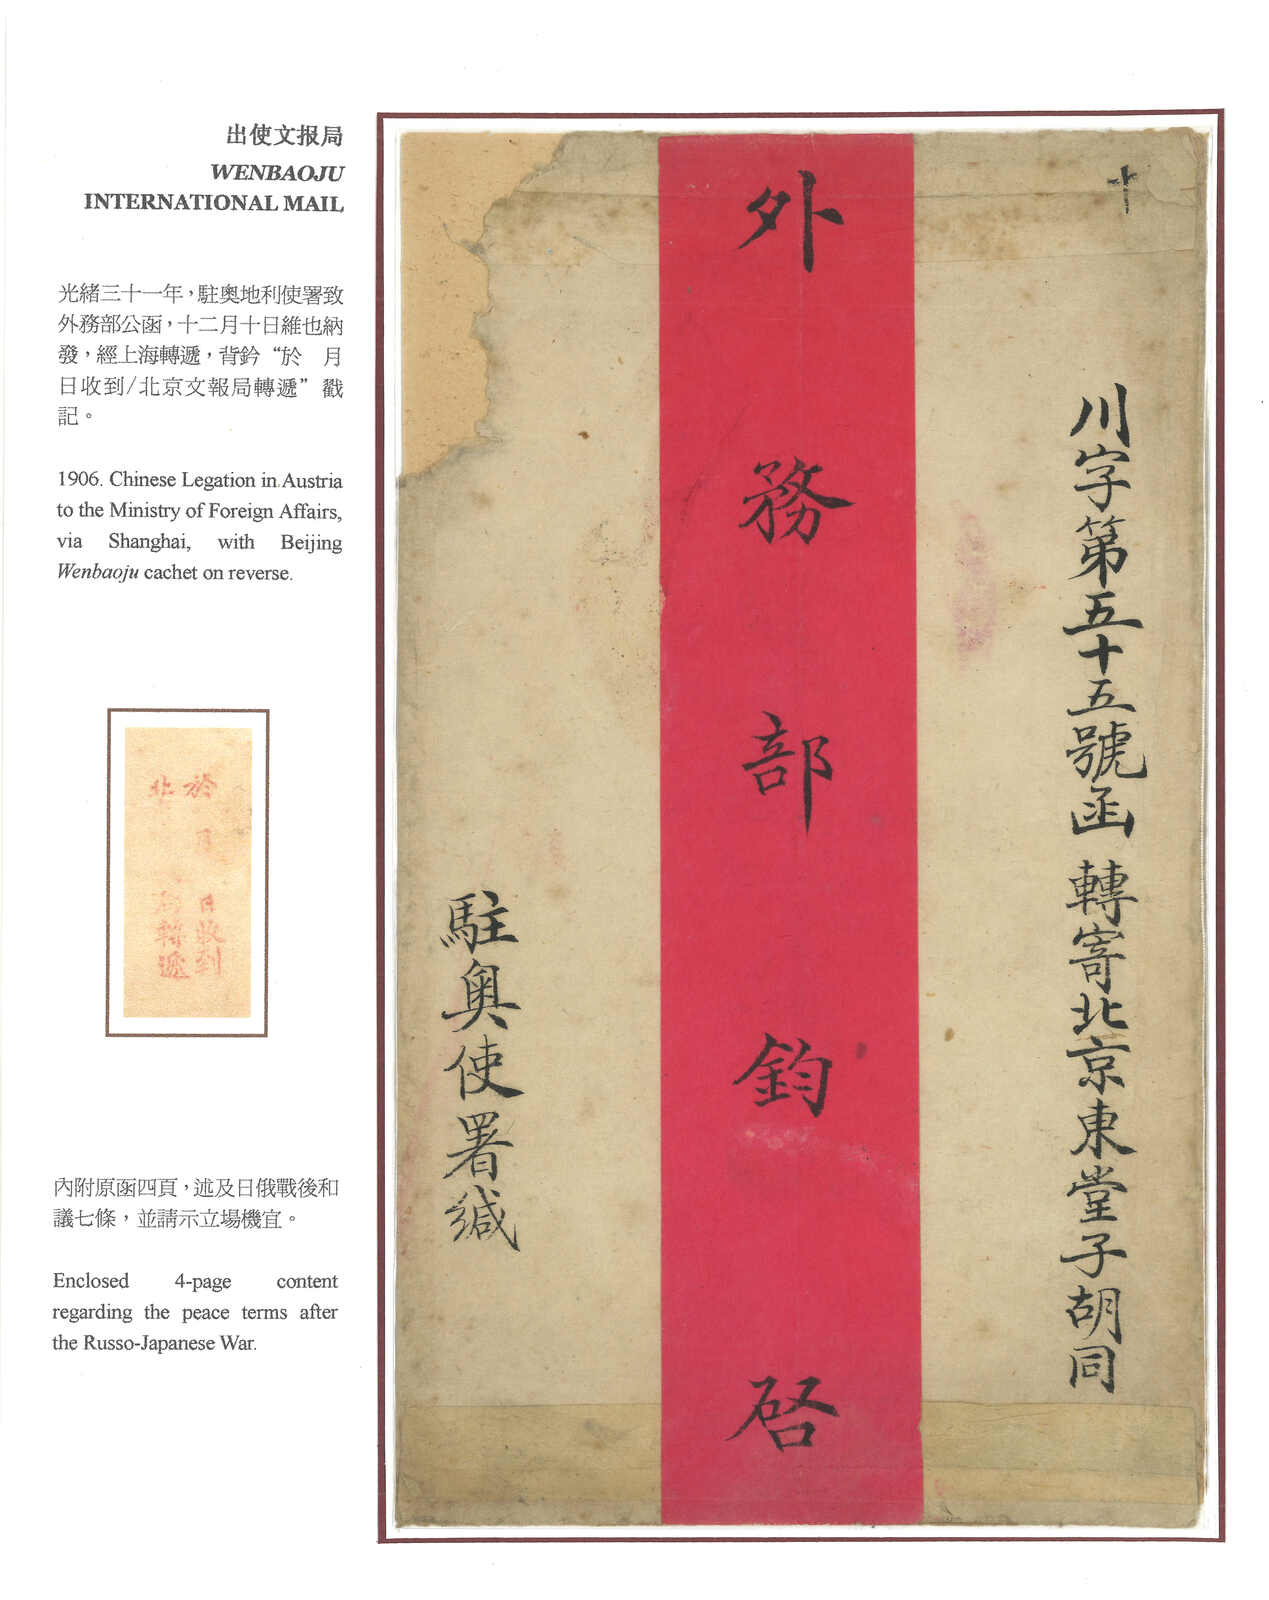 出使文报局
WENBAOJU
INTERNATIONAL MAIL
光緒三十一年，駐奧地利使署致
外務部公函，十二月十日維也納
發，經上海轉遞，背鈐“於　月
日收到/北京文報局轉遞”戳
記。
1906. Chinese Legation in Austria
to the Ministry of Foreign Affairs,
via Shanghai, with Beijing
Wenbaoju cachet on reverse.
於　月　日收到
北　局轉遞
內附原函四頁，述及日俄戰後和
議七條，並請示立場機宜。
Enclosed 4-page content
regarding the peace terms after
the Russo-Japanese War.
十
川字第五十五號函 轉寄北京東堂子胡同
外務部鈞啓
駐奧使署緘